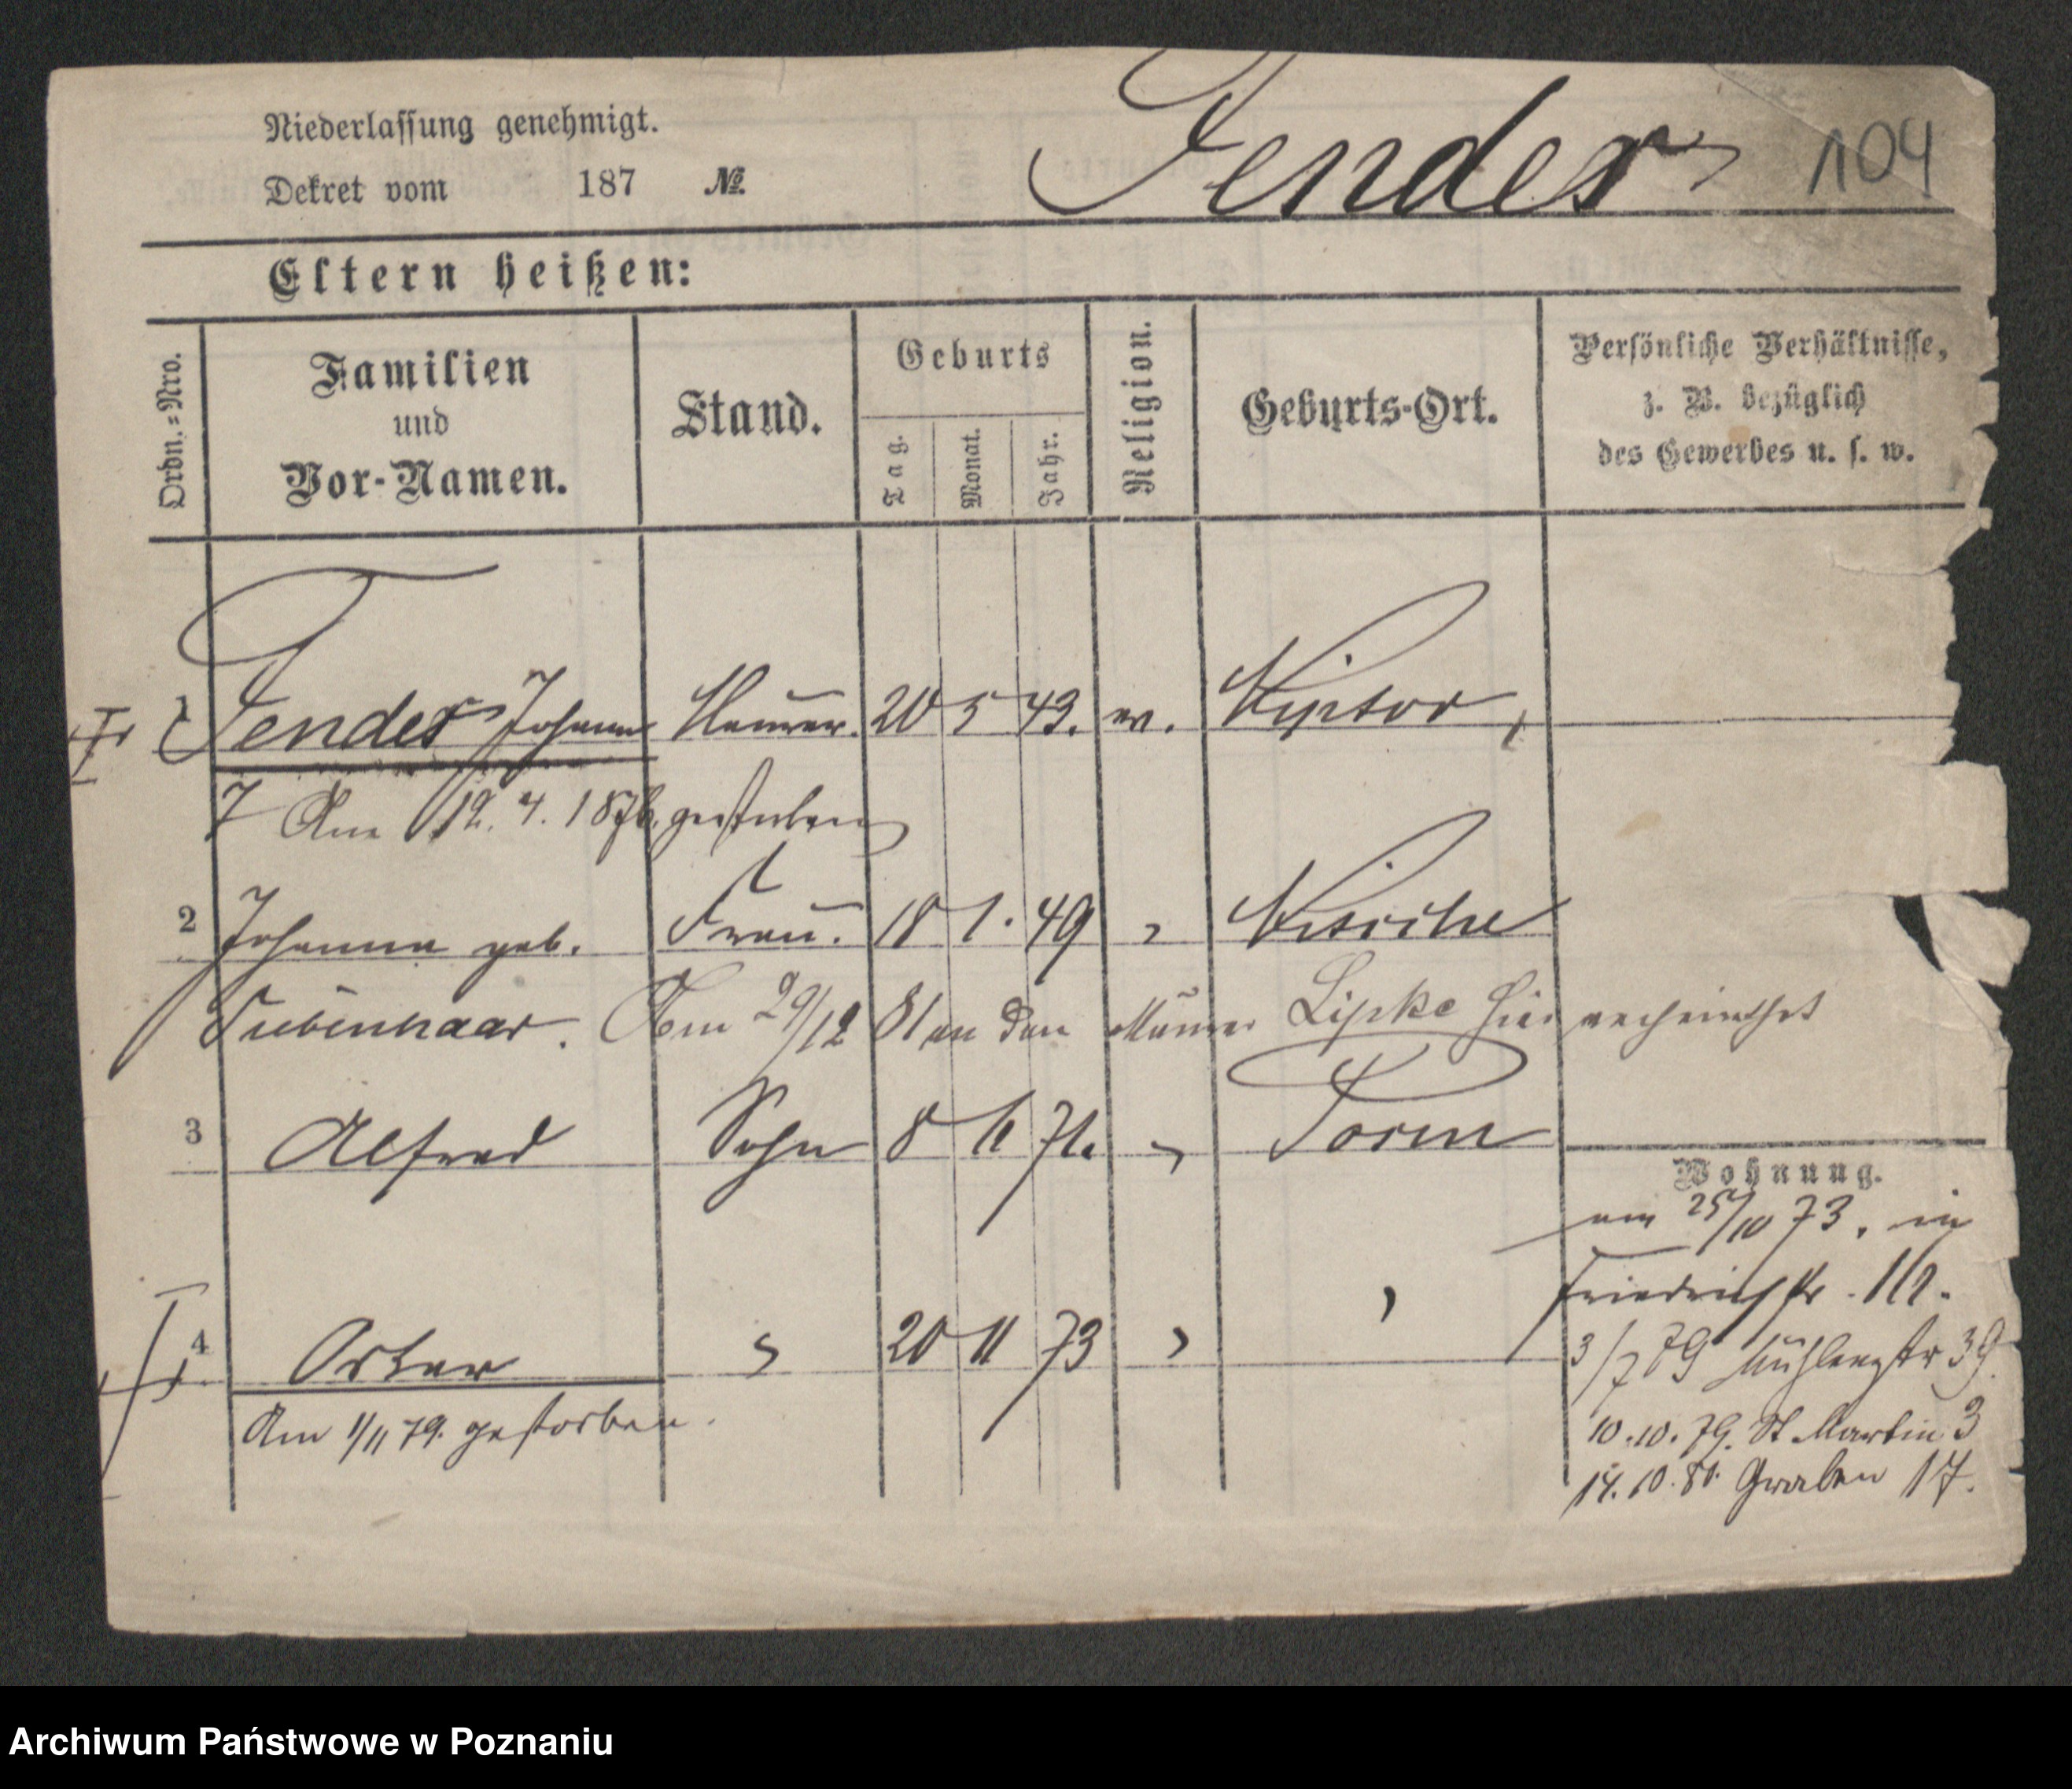 Niederlassung genehmigt.
Dekret vom 187 No.
Fender 104
Eltern heißen:
Ordn.=Nro.
Familien
und
Vor-Namen.
Stand.
Geburts
Tag.
Monat.
Jahr.
Religion.
Geburts-Ort.
Persönliche Verhältnisse,
z. B. bezüglich
des Gewerbes u. s. w.
1 Fender Johann Maurer. 20 5 43. ev.
† Am 12. 4. 1876 gestorben
2 Johanna geb. Frau. 18 1. 49 "
Am 29/12 81 an den Maurer Lipke hier verheirathet
3 Alfred Sohn 8 71.
Wohnung.
am 25/10 73. in
Friedrichstr.
4 Oskar " 20 11 73 " "
3/7 79 Mühlenstr 39.
Am 1/11 79. gestorben.
10.10.79. St Martin 3
14.10.80. Graben 17.
Archiwum Państwowe w Poznaniu